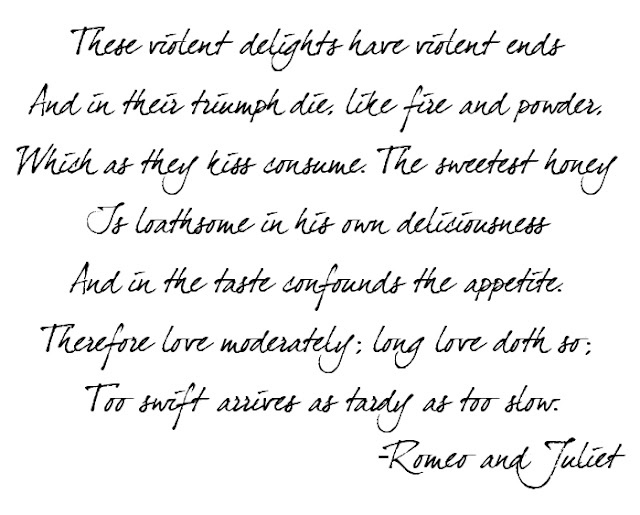 These violent delights have violent ends
And in their triumph die, like fire and powder,
Which as they kiss consume. The sweetest honey
Is loathsome in his own deliciousness
And in the taste confounds the appetite.
Therefore love moderately; long love doth so;
Too swift arrives as tardy as too slow.
-Romeo and Juliet